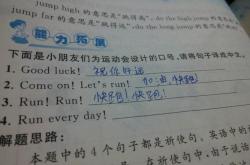 jump high 的意思是"跳得高", do the high jump 的意思是
jump far 的意思是"跳得远", do the long jump 的意思
能力拓展
下面是小朋友们为运动会设计的口号,请将句子译成中文。
1. Good luck! 祝你好运
2. Come on! Let's run! 加油,快跑
3. Run! Run! 快跑!快跑!
4. Run every day!
解题思路:
本题中的4个句子都是祈使句,英语中的祈